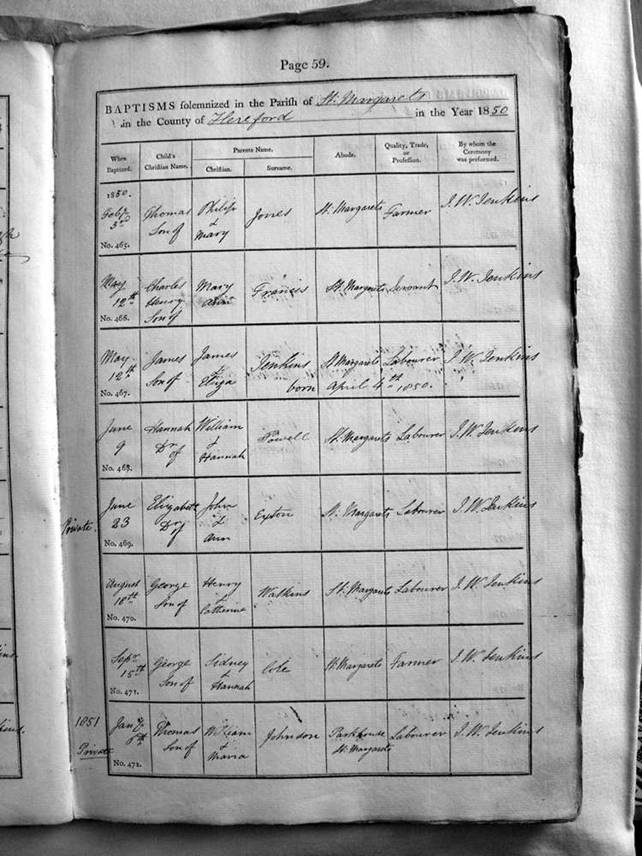 Page 59.
BAPTISMS solemnized in the Parish of St. Margarets
in the County of Hereford in the Year 1850
When Baptized. Child's Christian Name. Parents Name. Christian. Surname. Abode. Quality, Trade, or Profession. By whom the Ceremony was performed.
1850.
Feby. 3rd No. 465. Thomas Son of Philip & Mary Jones St. Margarets Farmer J. W. Jenkins
May 12th No. 466. Charles Henry Son of Mary Ann Francis St. Margarets Servant J. W. Jenkins
May 12th No. 467. James Son of James & Eliza Jenkins born April 4th 1850. St. Margarets Labourer J. W. Jenkins
June 9 No. 468. Hannah Dr of William & Hannah Powell St. Margarets Labourer J. W. Jenkins
Private. June 23 No. 469. Elizabeth Dr of John & Ann Exton St. Margarets Labourer J. W. Jenkins
August 18th No. 470. George Son of Henry & Catherine Watkins St. Margarets Labourer J. W. Jenkins
Sepr. 15th No. 471. George Son of Sidney & Hannah Cole St. Margarets Farmer J. W. Jenkins
1851 Private Jany. No. 472. Thomas Son of William & Maria Johnson Parkhouse St. Margarets Labourer J. W. Jenkins